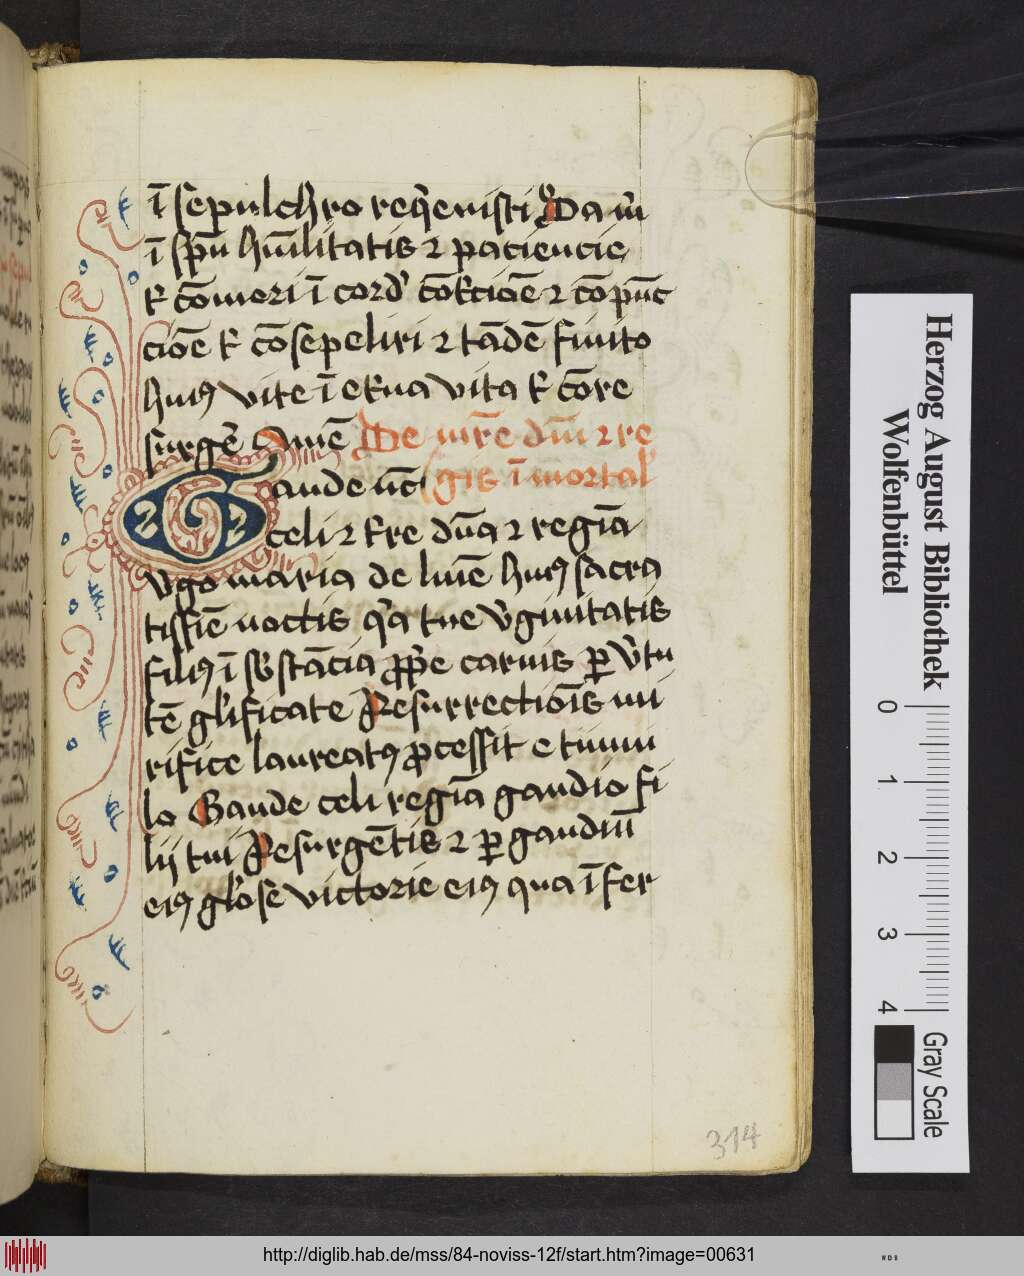 ī sepulchro reqͥevisti Da m̄
ī spū hūilitatis ⁊ paciencie
t̄ cōmori ī cord' cōt̄cioē ⁊ cōpūc
cioē t̄ cōsepeliri ⁊ tādē finito
huiꝰ vite ī et̄na vita t̄ cōre
surgē Amē De mr̄e dn̄i ⁊ re
gis ī mortal'
Gaude nc̄
celi ⁊ t̄re dn̄a ⁊ regīa
v̄go maria de linē huiꝰ sacra
tissīe noctis qͣ tue v̄ginitatis
filiꝰ ī sb̄stācia ꝓpͥe carnis ꝑ v̄tu
tē gl'ificate Resurrectiōis mi
rifice laureatꝰ ꝓcessit e tumu
lo Gaude celi regīa gaudio fi
lij tui Resurgētis ⁊ ꝑ gaudiū
eiꝰ gl'ose victorie eiꝰ qua ī fer
314
Herzog August Bibliothek
Wolfenbüttel
0 1 2 3 4
Gray Scale
http://diglib.hab.de/mss/84-noviss-12f/start.htm?image=00631